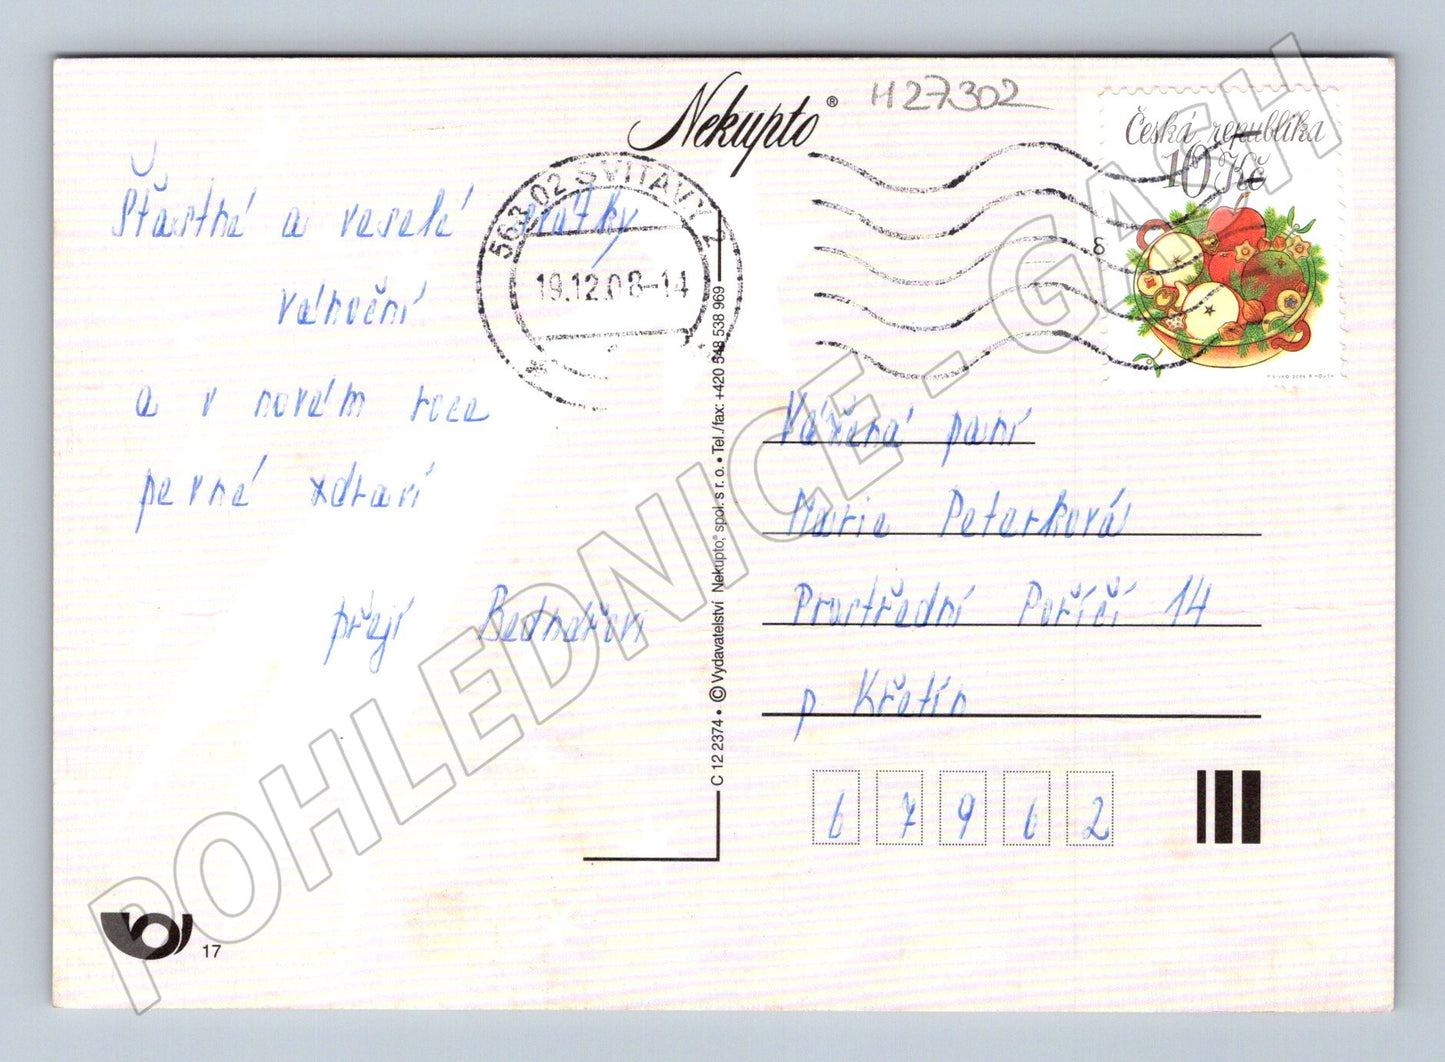 Nekupto®
H27302
Česká republika
10 Kč
563 02 SVITAVY 2
19.12.08-14
8
Šťastné a veselé svátky
vánoční
a v novém roce
pevné zdraví
přejí Bednářovi
Vážená paní
Marie Peterková
Prostřední Poříčí 14
p Křetín
67962
C 12 2374 • © Vydavatelství Nekupto, spol. s r. o. • Tel./fax: +420 548 538 969
17
POHLEDNICE - GASH